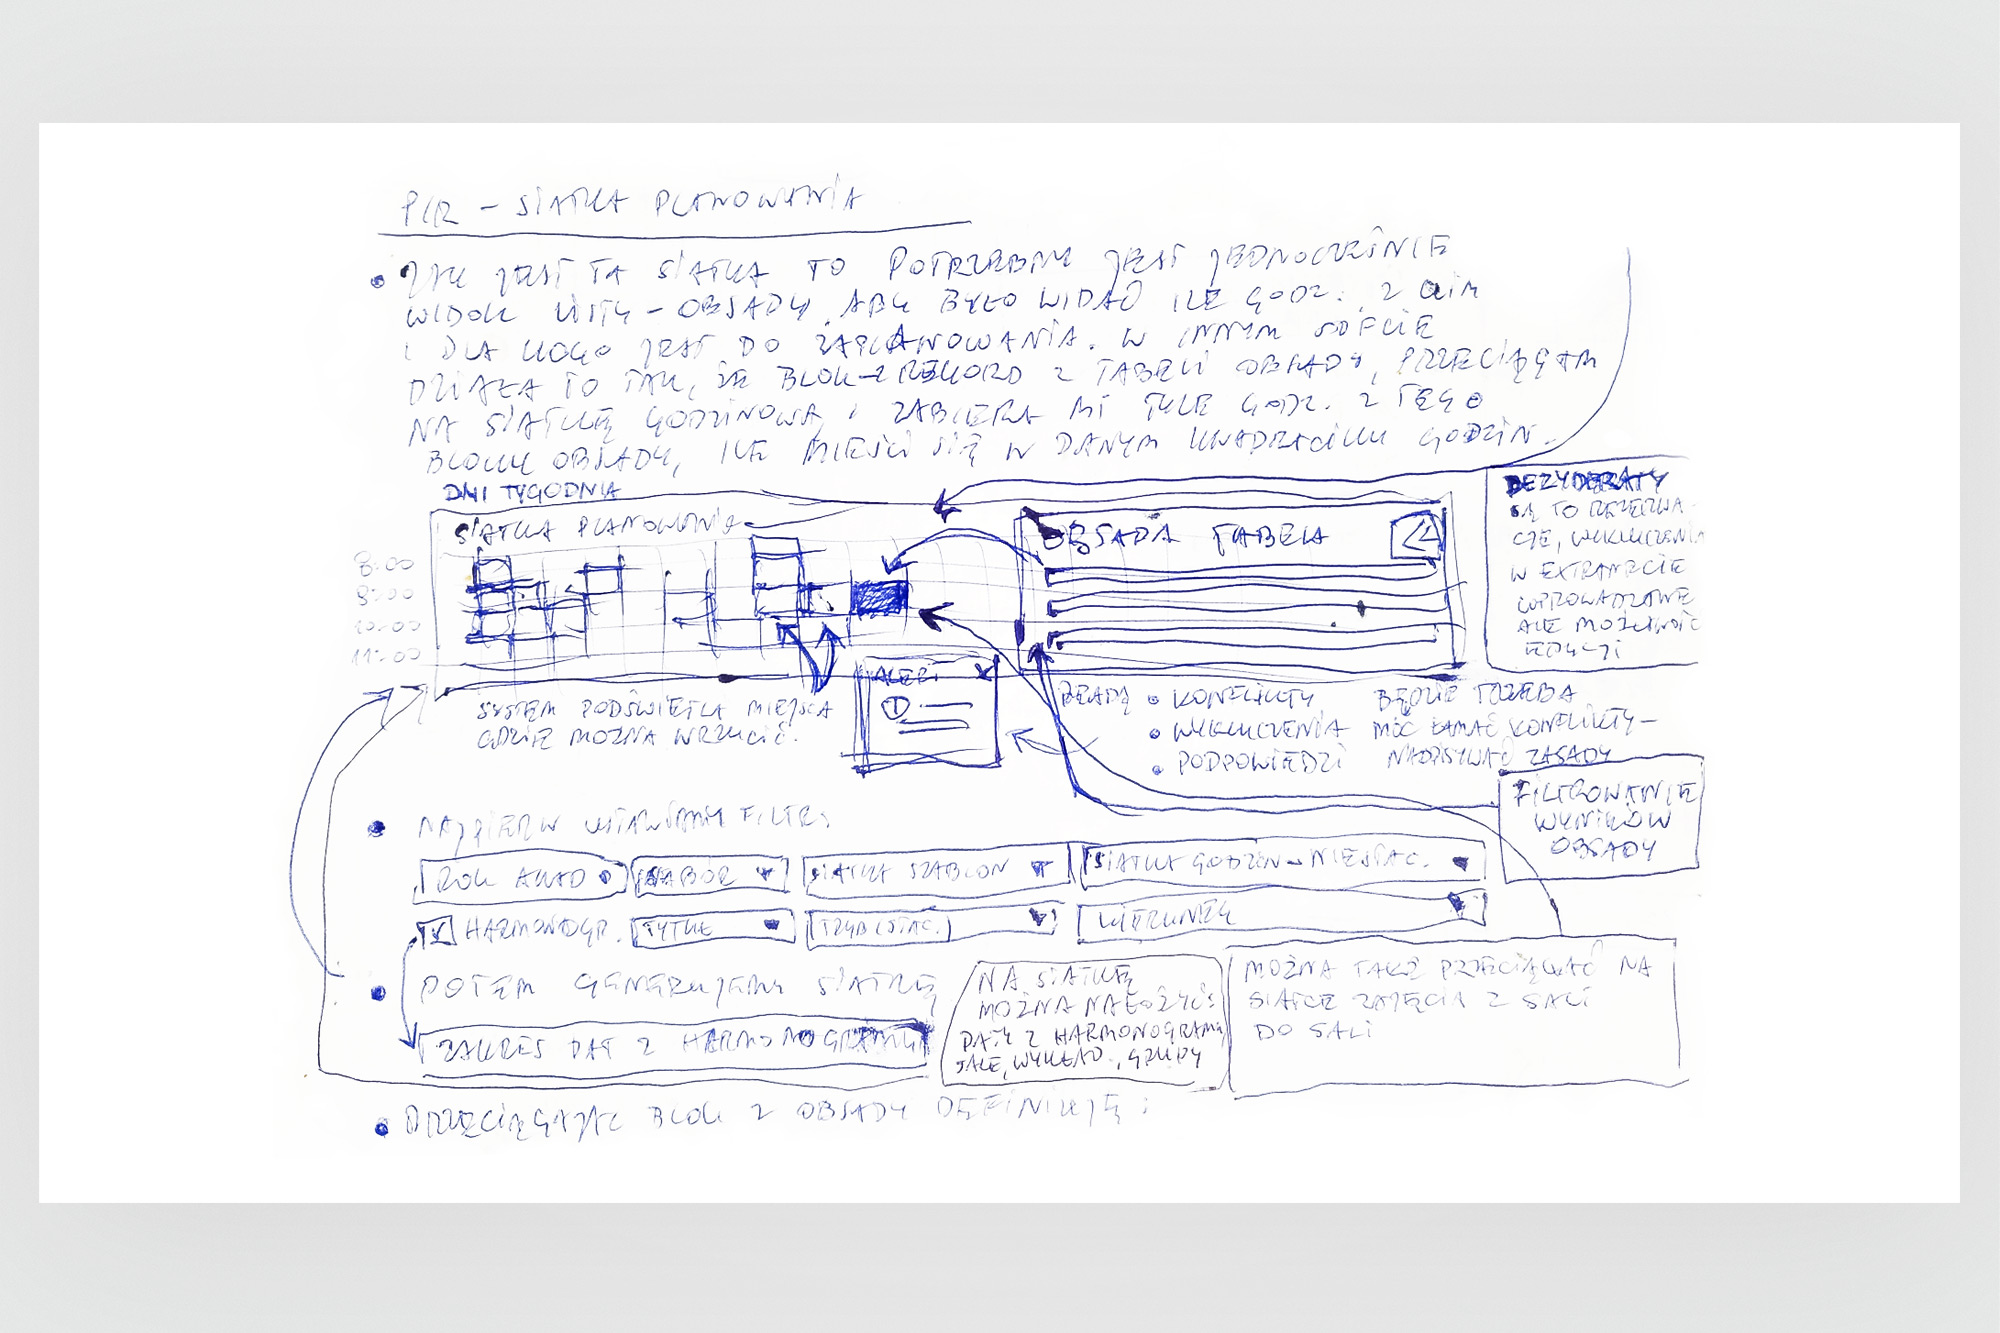 PLR – SIATKA PLANOWANIA
JAK JEST TA SIATKA TO POTRZEBNY JEST JEDNOCZEŚNIE
WIDOK LISTY – OBSADY, ABY BYŁO WIDAĆ ILE GODZ. Z CZYM
I DLA KOGO JEST DO ZAPLANOWANIA. W INNYM SOFCIE
DZIAŁA TO TAK, ŻE BLOK – REKORD Z TABELI OBSADY, PRZECIĄGAM
NA SIATKĘ GODZINOWĄ I ZABIERA MI TYLE GODZ. Z TEGO
BLOKU OBSADY, ILE MIEŚCI SIĘ W DANYM KWADRACIKU GODZIN.
DNI TYGODNIA
SIATKA PLANOWANIA
8:00
9:00
10:00
11:00
OBSADA TABELA
DEZYDERATY
SĄ TO REZERWA-
CJE, WYKLUCZENIA
W EXTRANECIE
WPROWADZONE
ALE MOŻLIWOŚĆ
EDYCJI
SYSTEM PODŚWIETLA MIEJSCA
GDZIE MOŻNA WRZUCIĆ.
ALERT
BĘDĄ • KONFLIKTY
• WYKLUCZENIA
• PODPOWIEDZI
BĘDZIE TRZEBA
MÓC ŁAMAĆ KONFLIKTY –
NADPISYWAĆ ZASADY
FILTROWANIE
WYNIKÓW
OBSADY
NAJPIERW USTAWIAMY FILTR:
ROK AKAD
NABÓR
SIATKA SZABLON
SIATKA GODZIN – NIESTAC.
HARMONOGR.
TYTUŁ
TRYB (STAC.)
KIERUNEK
POTEM GENERUJEMY SIATKĘ
ZAKRES DAT Z HARMONOGRAMU
NA SIATKĘ
MOŻNA NAŁOŻYĆ:
DATY Z HARMONOGRAMU,
SALE, WYKŁAD., GRUPY
MOŻNA TAKŻE PRZECIĄGAĆ NA
SIATCE ZAJĘCIA Z SALI
DO SALI
PRZECIĄGAJĄC BLOK Z OBSADY DEFINIUJĘ: